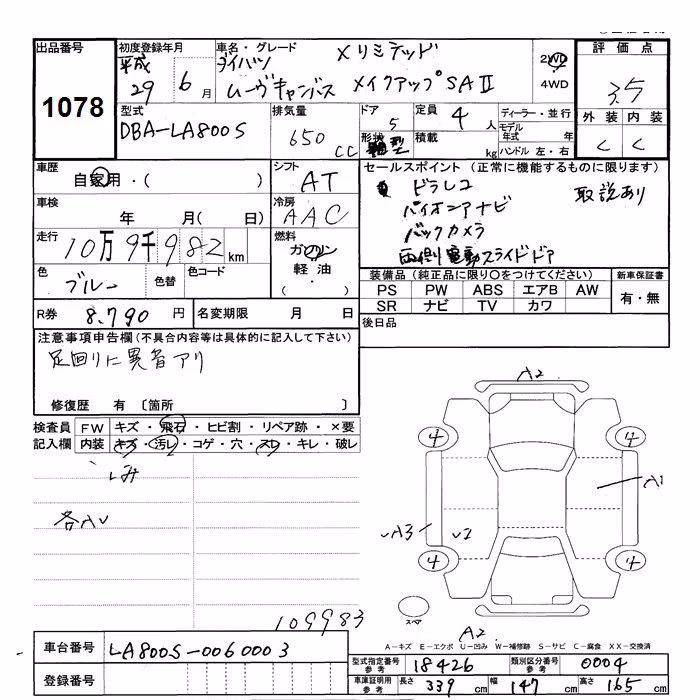 出品番号
1078
初度登録年月
平成
29 6月
車名・グレード
ダイハツ Xリミテッド
ムーヴキャンバス メイクアップSAⅡ
2WD
4WD
評価点
3.5
外装 内装
C C
型式
DBA-LA800S
排気量
650 CC
ドア
5
形状
定員
4人
積載
kg
ディーラー・並行
モデル年式 年
ハンドル 左・右
車歴
自家用・( )
シフト
AT
車検
年 月( 日)
冷房
AAC
走行
10万9千982km
燃料
ガソリン
軽油
( ・ )
色
ブルー
色替
色コード
R券
8,790円
名変期限 月 日
セールスポイント(正常に機能するものに限ります)
ドラレコ 取説あり
パイオニアナビ
バックカメラ
両側電動スライドドア
装備品(純正品に限り○をつけてください)
PS PW ABS エアB AW
SR ナビ TV カワ
新車保証書
有・無
後日品
注意事項申告欄(不具合内容等は具体的に記入して下さい)
足回りに異音アリ
修復歴 有〔箇所 〕
検査員記入欄
FW キズ・飛石・ヒビ割・リペア跡・×要
内装 キズ・汚レ・コゲ・穴・スレ・キレ・破レ
シミ
各AU
109983
A2
4 4
A1
A3
4 4
スペア
A2
A-キズ E-エクボ U-凹み W-補修跡 S-サビ C-腐食 XX-交換済
車台番号
LA800S-0060003
登録番号
型式指定番号
参考
18426
類別区分番号
参考
0004
車庫証明用
参考
長さ 339cm 幅 147cm 高さ 165cm